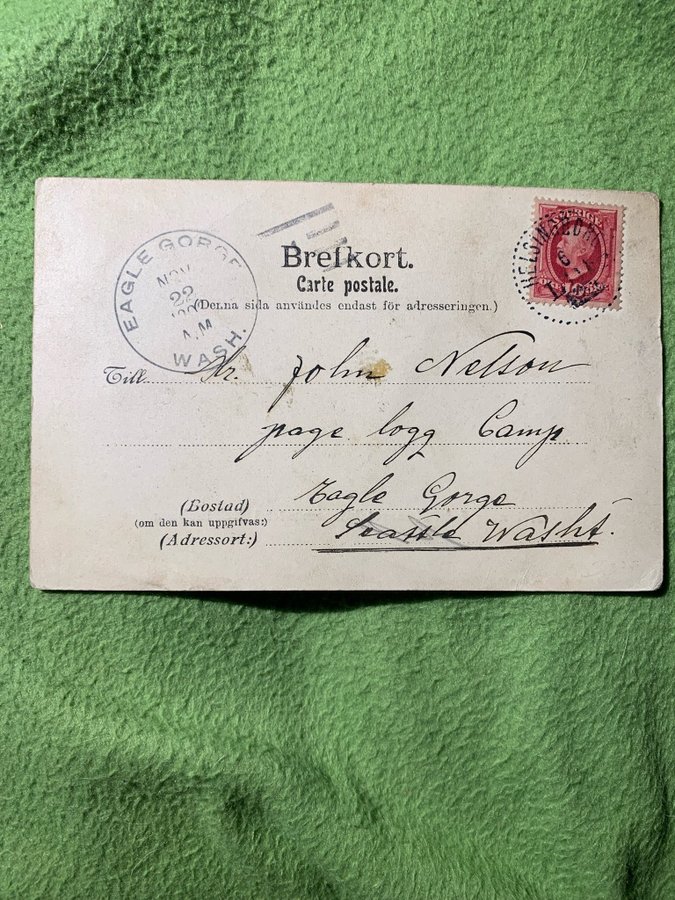 Brefkort.
Carte postale.
(Denna sida användes endast för adresseringen.)
EAGLE GORGE
NOV
22
A.M
WASH.
SVERIGE
HELSINGBORG
Till Mr. John Nelson
page logg Camp
(Bostad) Eagle Gorge
(om den kan uppgifvas:)
(Adressort:) Seattle Washt.